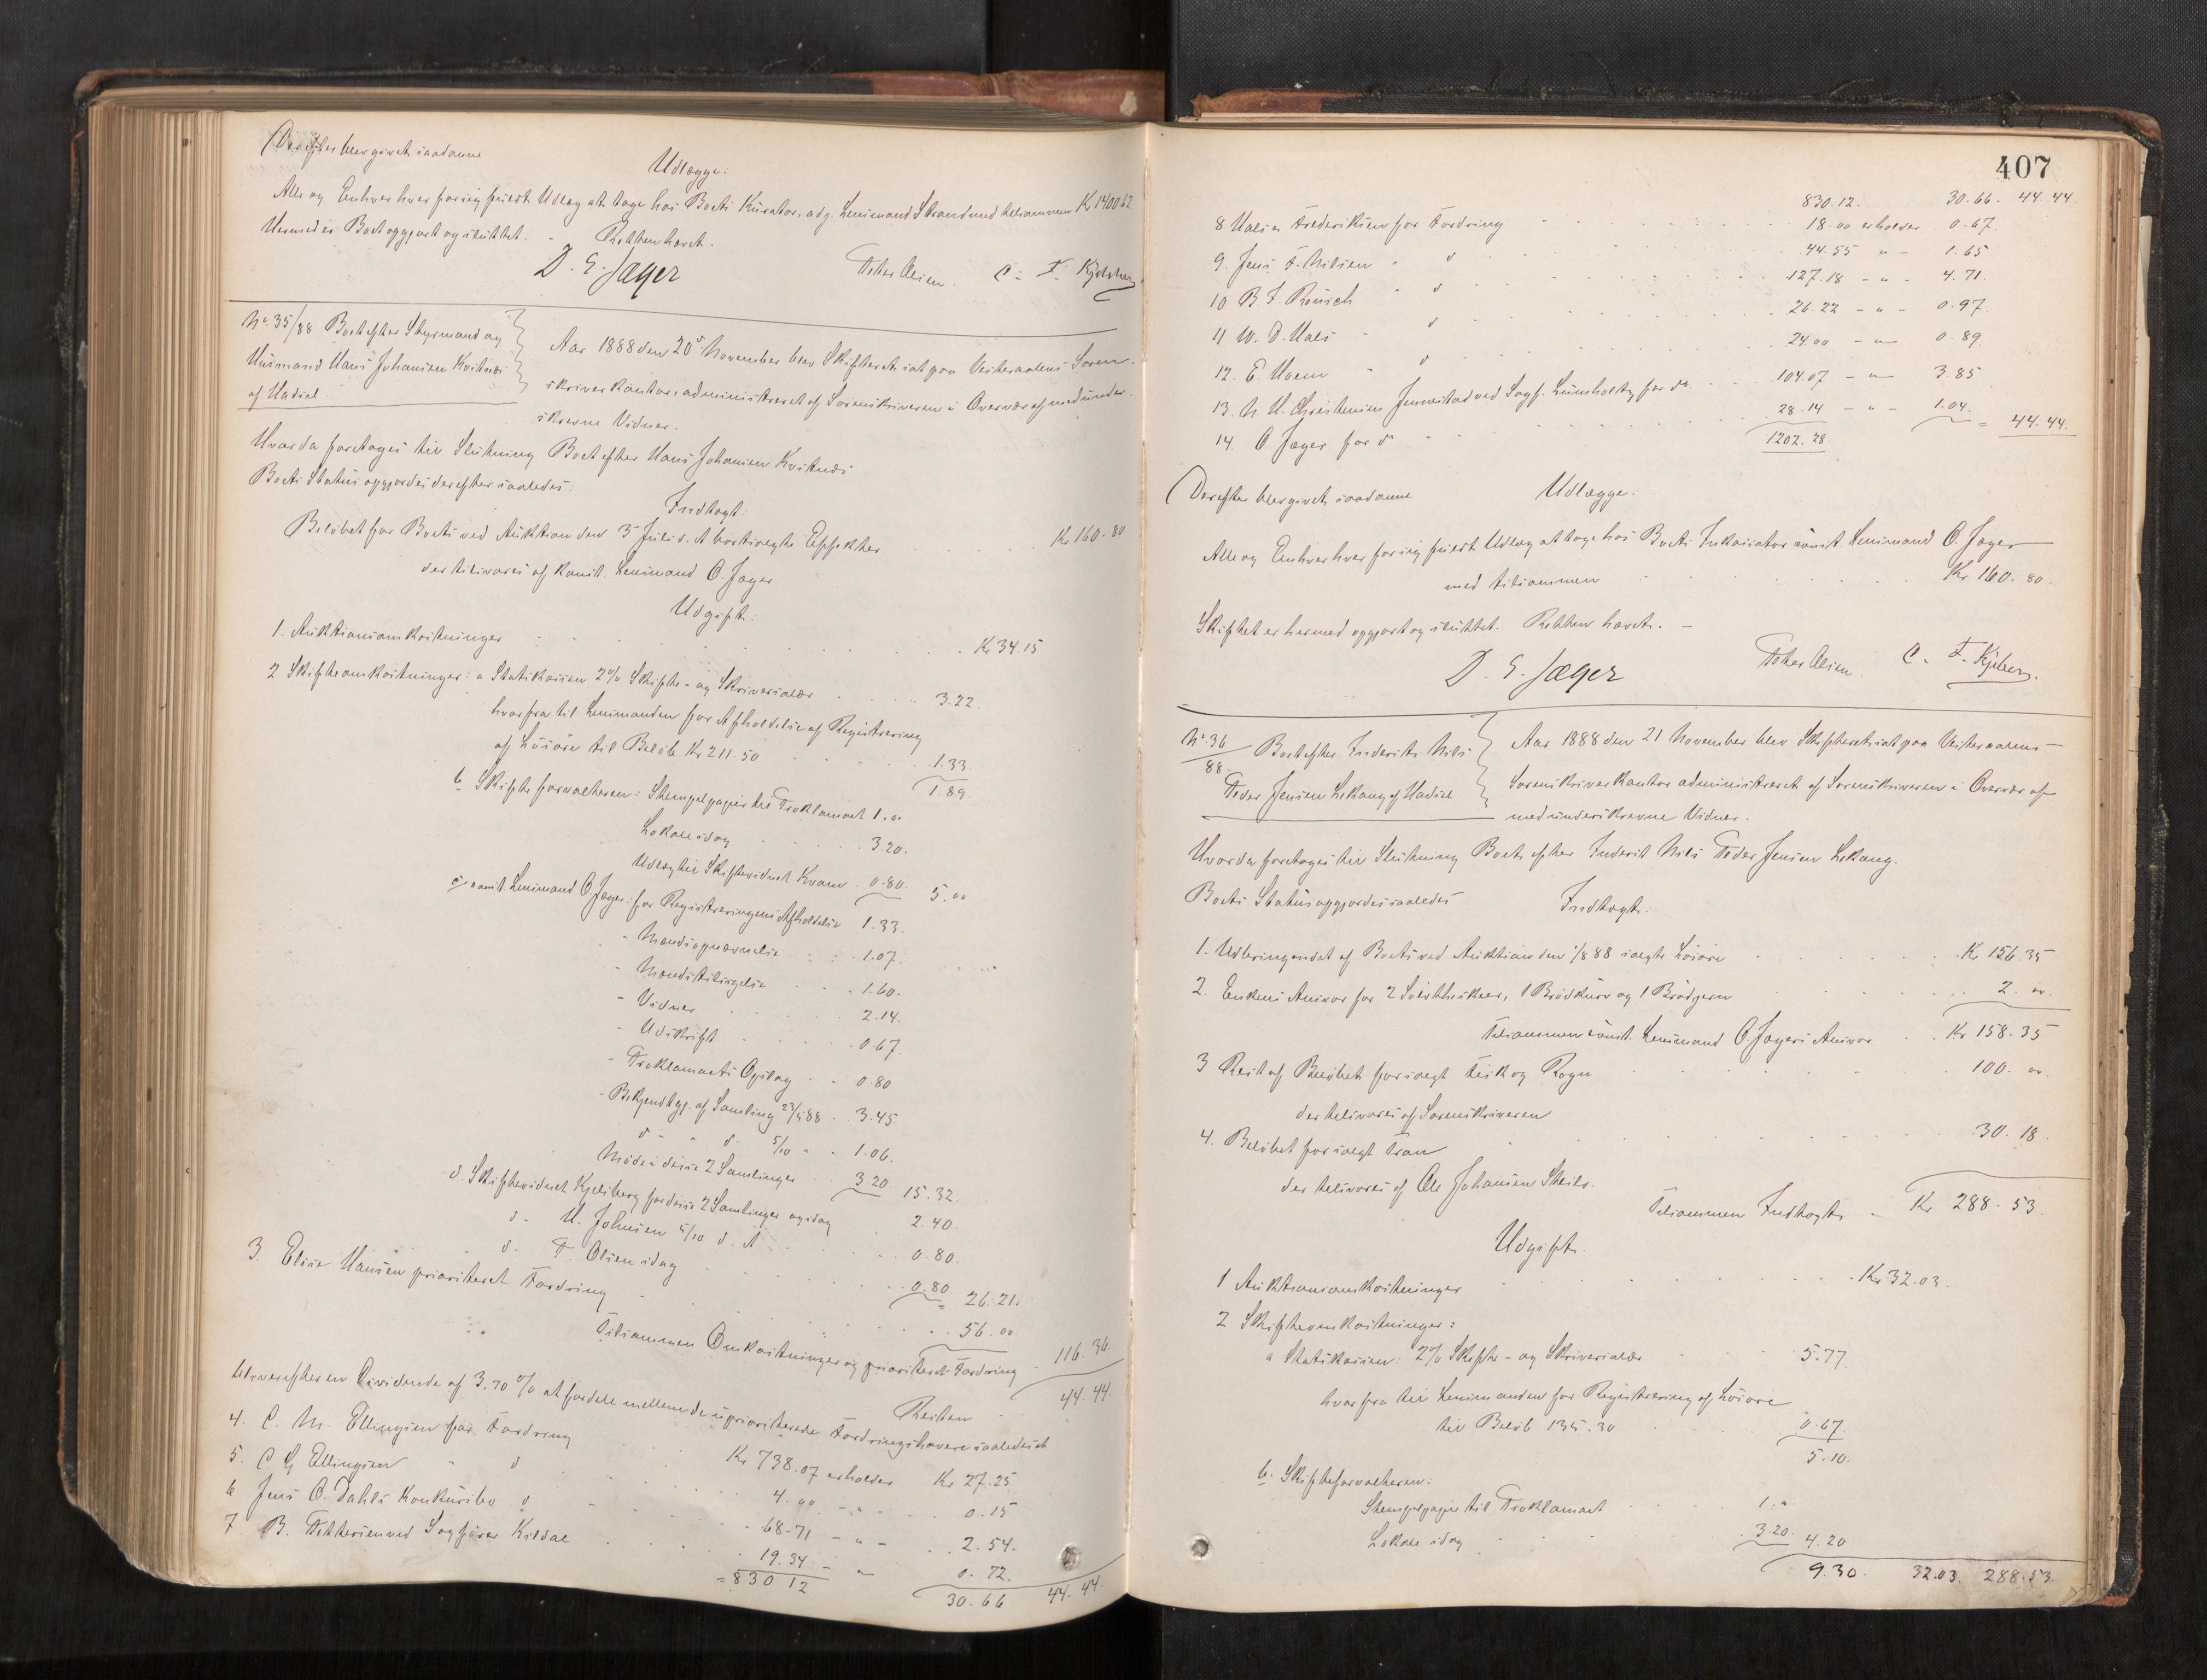 Derefter blev givet saadanne
Udlægge:
Alle og Enhver hver for sig frieste Udlæg at tage hos Boets Kurator, adj. Lensmand Strand med tilsammen Kr 1400 62
Hermed er Boet opgjort og sluttet. - Retten hævet.
D. E. Jæger Peter Olsen. C. F. Kjelsberg
No. 35/88 Boet efter Styrmand og
Husmand Hans Johansen Kvitnes
af Hadsel.
Aar 1888 den 20de November blev Skifteret sat paa Vesteraalens Soren-
skriverkontor, administreret af Sorenskriveren i Overvær af medunder-
skrevne Vidner.
Hvorda foretoges til Slutning Boet efter Hans Johansen Kvitnes
Boets Status opgjordes derefter saaledes:
Indtægt:
Beløbet for Boets ved Auktion den 3 Juli d. A bortsolgte Effekter Kr 160.80
der tilsvares af konst. Lensmand O. Jæger
Udgift.
1. Auktionsomkostninger Kr 34.15
2 Skifteomkostninger: a Statskassen 2% Skifte- og Skriversalær 3.22
hvorfra til Lensmanden for Afholdelse af Registrering
af Løsøre til Beløb Kr 211.50 1.33
1.89.
b Skifteforvalteren: Stempelpapir til Proklamaet 1. "
Lokale idag 3.20.
Udlæg til Skiftevidnet Kvam 0.80. 5.00
c const. Lensmand O Jæger: for Registreringens Afholdelse 1.33.
- Mændsopnævnelse 1.07.
- Mændstilsigelse 1.60.
- Vidner 2.14.
- Udskrift 0.67.
- Proklamaets Opslag 0.80
- Bekjendtgj. af Samling 23/5 88 3.45
d - " d 5/10 " 1.06.
Møde i disse 2 Samlinger 3.20 15.32.
d. Skiftevidnet Kjelsberg for disse 2 Samlinger og idag 2.40.
d - H. Johnsen 5/10 d. A 0.80.
d - P. Olsen idag 0.80 = 26.21.
3. Elise Hansen prioriteret Fordring 56.00
Tilsammen Omkostninger og prioriteret Fordring 116.36
Resten 44.44.
blive efter en Dividende af 3.70% at fordele mellem de uprioriterede Fordringshavere saaledes:
4. C. M. Ellingsen for Fordring Kr 738.07 erholder Kr 27.25
5. C G Ellingsen " d 4.00 - " - 0.15
6 Jens O. Dahls Konkursbo d 68.71 - " - 2.54.
7. B. Pettersen ved Sagfører Kildal 19.34 - " 0.72.
= 830 12 30.66 44.44.
407
830.12. 30.66. 44.44
8 Hals & Frederiksen for Fordring 18.00 erholder 0.67.
9. Jens F. Nilsen " d 44.55 " - 1.65
10 B. F. Reusch " d 127.18 - " - 4.71.
11 W. D. Hals " d 26.22 - " - 0.97
12. E Hveem " d 24.00 - " 0.89
13. N. H. Christensen Jennestad ved Sagf. Lumholtz for do 104.07 - " 3.85
14. O Jæger for do 28.14 - " - 1.04. = 44.44.
1202.28
Derefter blev givet saadanne Udlægge.
Alle og Enhver hver for sig frieste Udlæg at tage hos Boets Inkassator const. Lensmand O. Jæger
med tilsammen Kr 160.80.
Skiftet er hermed opgjort og sluttet. Retten hævet. -
D. E. Jæger Peter Olsen. C. F. Kjelsberg.
No. 36/88. Boet efter Inderste Nils
Peder Jensen Lekang af Hadsel
Aar 1888 den 21 November blev Skifteret sat paa Vesteraalens
Sorenskriverkontor administreret af Sorenskriveren i Overvær af
medunderskrevne Vidner.
Hvorda foretoges til Slutning Boet efter Inderst Nils Peder Jensen Lekang.
Boets Status opgjordes saaledes
Indtægt:
1. Udbringendet af Boets ved Auktion den 1/8 88 solgte Løsøre Kr 156.35
2. Enkens Ansvar for 2 Sølvtheskeer, 1 Brødkurv og 1 2. "
Tilsammen const. Lensmand O. Jægers Ansvar Kr 158.35
3 Rest af Beløbet for solgt Fisk og Rogn 100. "
der tilsvares af Sorenskriveren
4. Beløbet for solgt Tran 30.18.
der tilsvares af Ole Johansen Skeilv.
Tilsammen Indtægt - Kr 288.53.
Udgift.
1 Auktionsomkostninger Kr 32.03.
2 Skifteomkostninger:
a Statskassen: 2% Skifte- og Skriversalær 5.77
hvorfra til Lensmanden for Registrering af Løsøre
til Beløb 135.30 0.67
5.10.
b. Skifteforvalteren:
Stempelpapir til Proklamaet 1. "
Lokale idag 3.20. 4.20
9.30. 32.03. 288.53.